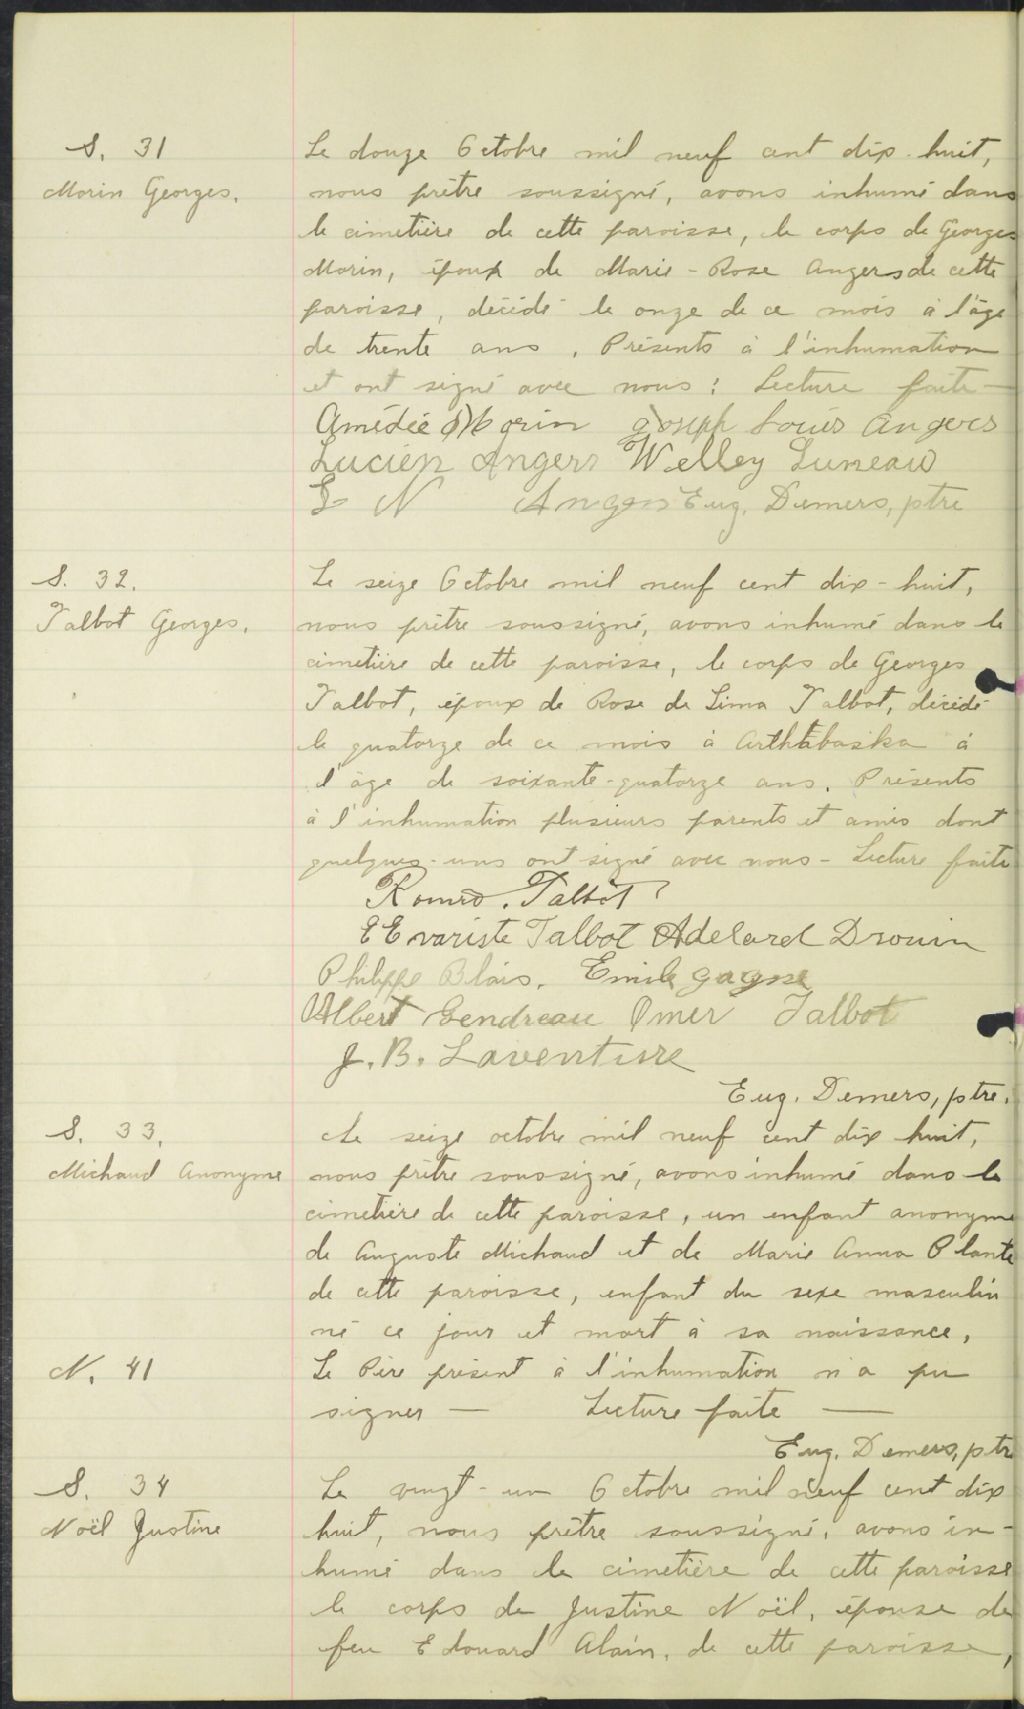 S. 31
Morin Georges.
Le douze Octobre mil neuf cent dix-huit,
nous prêtre soussigné, avons inhumé dans
le cimetière de cette paroisse, le corps de Georges
Morin, époux de Marie-Rose Angers de cette
paroisse, décédé le onze de ce mois à l'âge
de trente ans. Présents à l'inhumation
et ont signé avec nous: Lecture faite —
Amédée Morin Joseph Louis Angers
Lucien Angers Welley Luneau
L N Angers Eug. Demers, ptre
S. 32.
Talbot Georges.
Le seize Octobre mil neuf cent dix-huit,
nous prêtre soussigné, avons inhumé dans le
cimetière de cette paroisse, le corps de Georges
Talbot, époux de Rose de Lima Talbot, décédé
le quatorze de ce mois à Arthabaska à
l'âge de soixante-quatorze ans. Présents
à l'inhumation plusieurs parents et amis dont
quelques-uns ont signé avec nous - Lecture faite
Roméo. Talbot
E Evariste Talbot Adelard Drouin
Philippe Blais. Emile gagne
Albert Gendreau Omer Talbot
J. B. Laventure
Eug. Demers, ptre.
S. 33.
Michaud Anonyme
Le seize octobre mil neuf cent dix huit,
nous prêtre soussigné, avons inhumé dans le
cimetière de cette paroisse, un enfant anonyme
de Auguste Michaud et de Marie Anna Plante
de cette paroisse, enfant du sexe masculin
né ce jour et mort à sa naissance.
N. 41
Le Père présent à l'inhumation n'a pu
signer — Lecture faite —
Eug. Demers, ptre
S. 34
Noël Justine
Le vingt-un Octobre mil neuf cent dix
huit, nous prêtre soussigné, avons in-
humé dans le cimetière de cette paroisse
le corps de Justine Noël, épouse de
feu Edouard Alain, de cette paroisse,